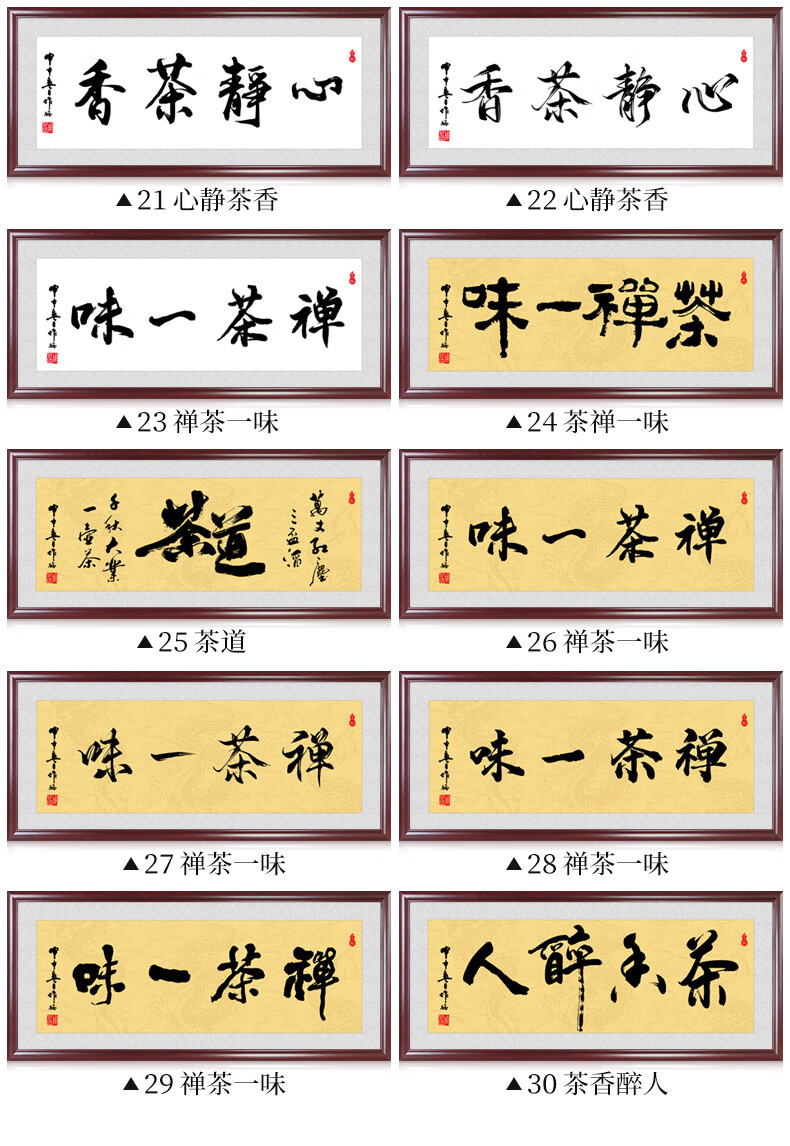 心靜茶香
▲21 心静茶香
心静茶香
▲22 心静茶香
禅茶一味
▲23 禅茶一味
茶禪一味
▲24 茶禅一味
萬丈紅塵
三盃酒
茶道
千秋大業
一壺茶
▲25 茶道
禅茶一味
▲26 禅茶一味
禅茶一味
▲27 禅茶一味
禅茶一味
▲28 禅茶一味
禪茶一味
▲29 禅茶一味
茶香醉人
▲30 茶香醉人